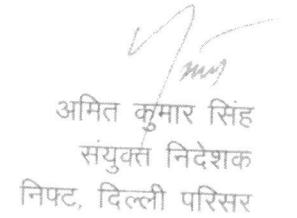 अमित कुमार सिंह
संयुक्त निदेशक
निफ्ट, दिल्ली परिसर